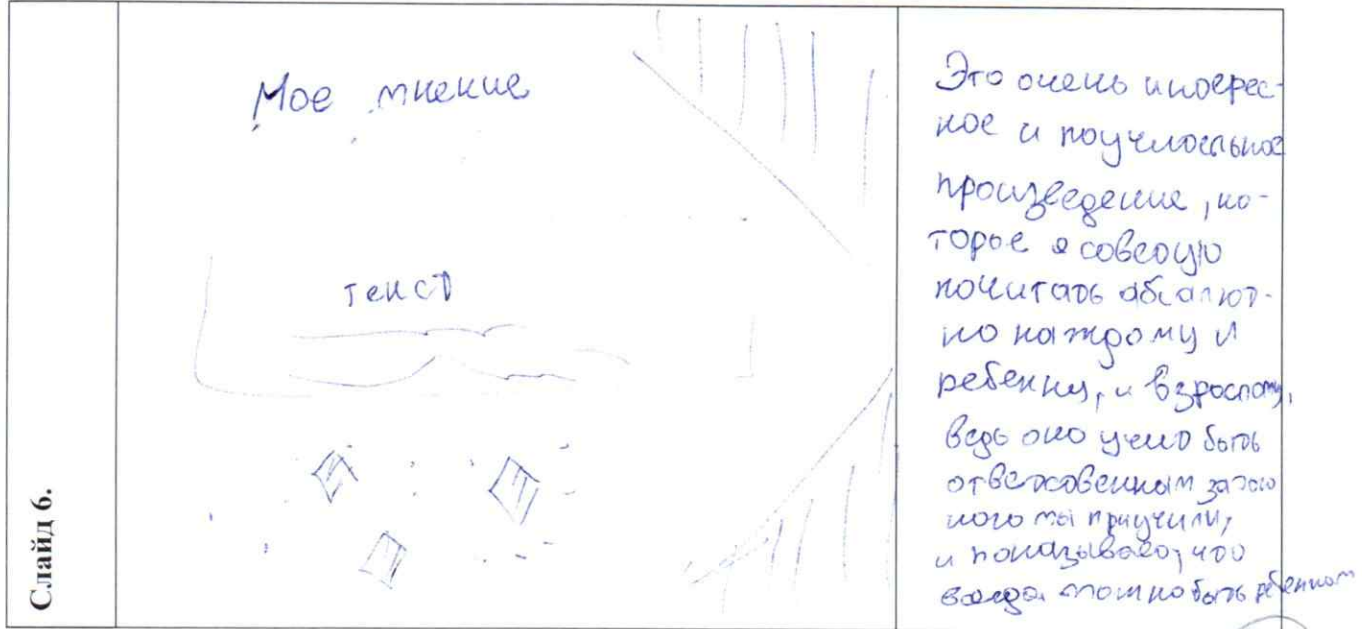 Слайд 6.
Мое мнение
текст
Это очень интерес-
ное и поучительное
произведение, ко-
торое я советую
почитать абсалют-
но каждому и
ребенку, и взрослому,
ведь оно учит быть
ответсвенным за того
кого мы приучили,
и показывает, что
всегда можно быть ребенком